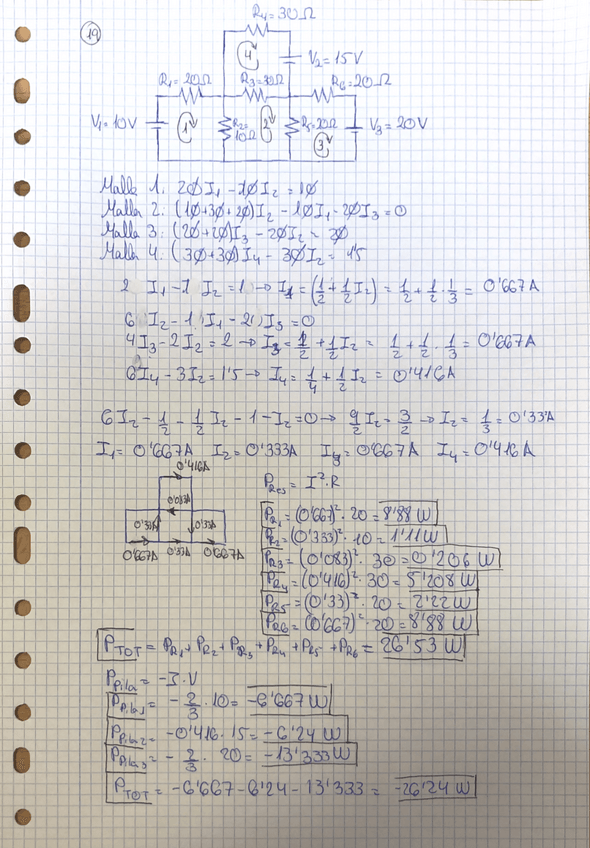 19
R₄=30Ω
4
V₂=15V
R₁=20Ω
R₃=30Ω
R₆=20Ω
V₁=10V
1
R₂=10Ω
2
R₅=20Ω
3
V₃=20V
Malla 1: 20I₁ - 10I₂ = 10
Malla 2: (10+30+20)I₂ - 10I₁ - 20I₃ = 0
Malla 3: (20+20)I₃ - 20I₂ =
Malla 4: (30+30)I₄ - 30I₂ = 15
2 I₁ - 1 I₂ = 1 → I₁ = (1/2 + 1/2 I₂) = 1/2 + 1/2 · 1/3 = 0'667A
6 I₂ - 1 I₁ - 2 I₃ = 0
4I₃ - 2I₂ = 2 → I₃ = 1/2 + 1/2 I₂ = 1/2 + 1/2 · 1/3 = 0'667A
6I₄ - 3I₂ = 1'5 → I₄ = 1/4 + 1/2 I₂ = 0'416A
6I₂ - 1/2 - 1/2 I₂ - 1 - I₂ = 0 → 9/2 I₂ = 3/2 → I₂ = 1/3 = 0'33A
I₁ = 0'667A I₂ = 0'333A I₃ = 0'667A I₄ = 0'416A
0'416A
0'083A
0'33A
0'33A
0'667A
0'33A
0'667A
P_Res = I²·R
P_R1 = (0'667)²·20 = 8'88 W
P_R2 = (0'333)²·10 = 1'11 W
P_R3 = (0'083)²·30 = 0'206 W
P_R4 = (0'416)²·30 = 5'208 W
P_R5 = (0'33)²·20 = 2'22 W
P_R6 = (0'667)²·20 = 8'88 W
P_TOT = P_R1 + P_R2 + P_R3 + P_R4 + P_R5 + P_R6 = 26'53 W
P_pila = -I·V
P_Pila1 = - 2/3 · 10 = -6'667 W
P_Pila2 = -0'416·15 = -6'24 W
P_Pila3 = - 2/3 · 20 = -13'333 W
P_TOT = -6'667 - 6'24 - 13'333 = -26'24 W